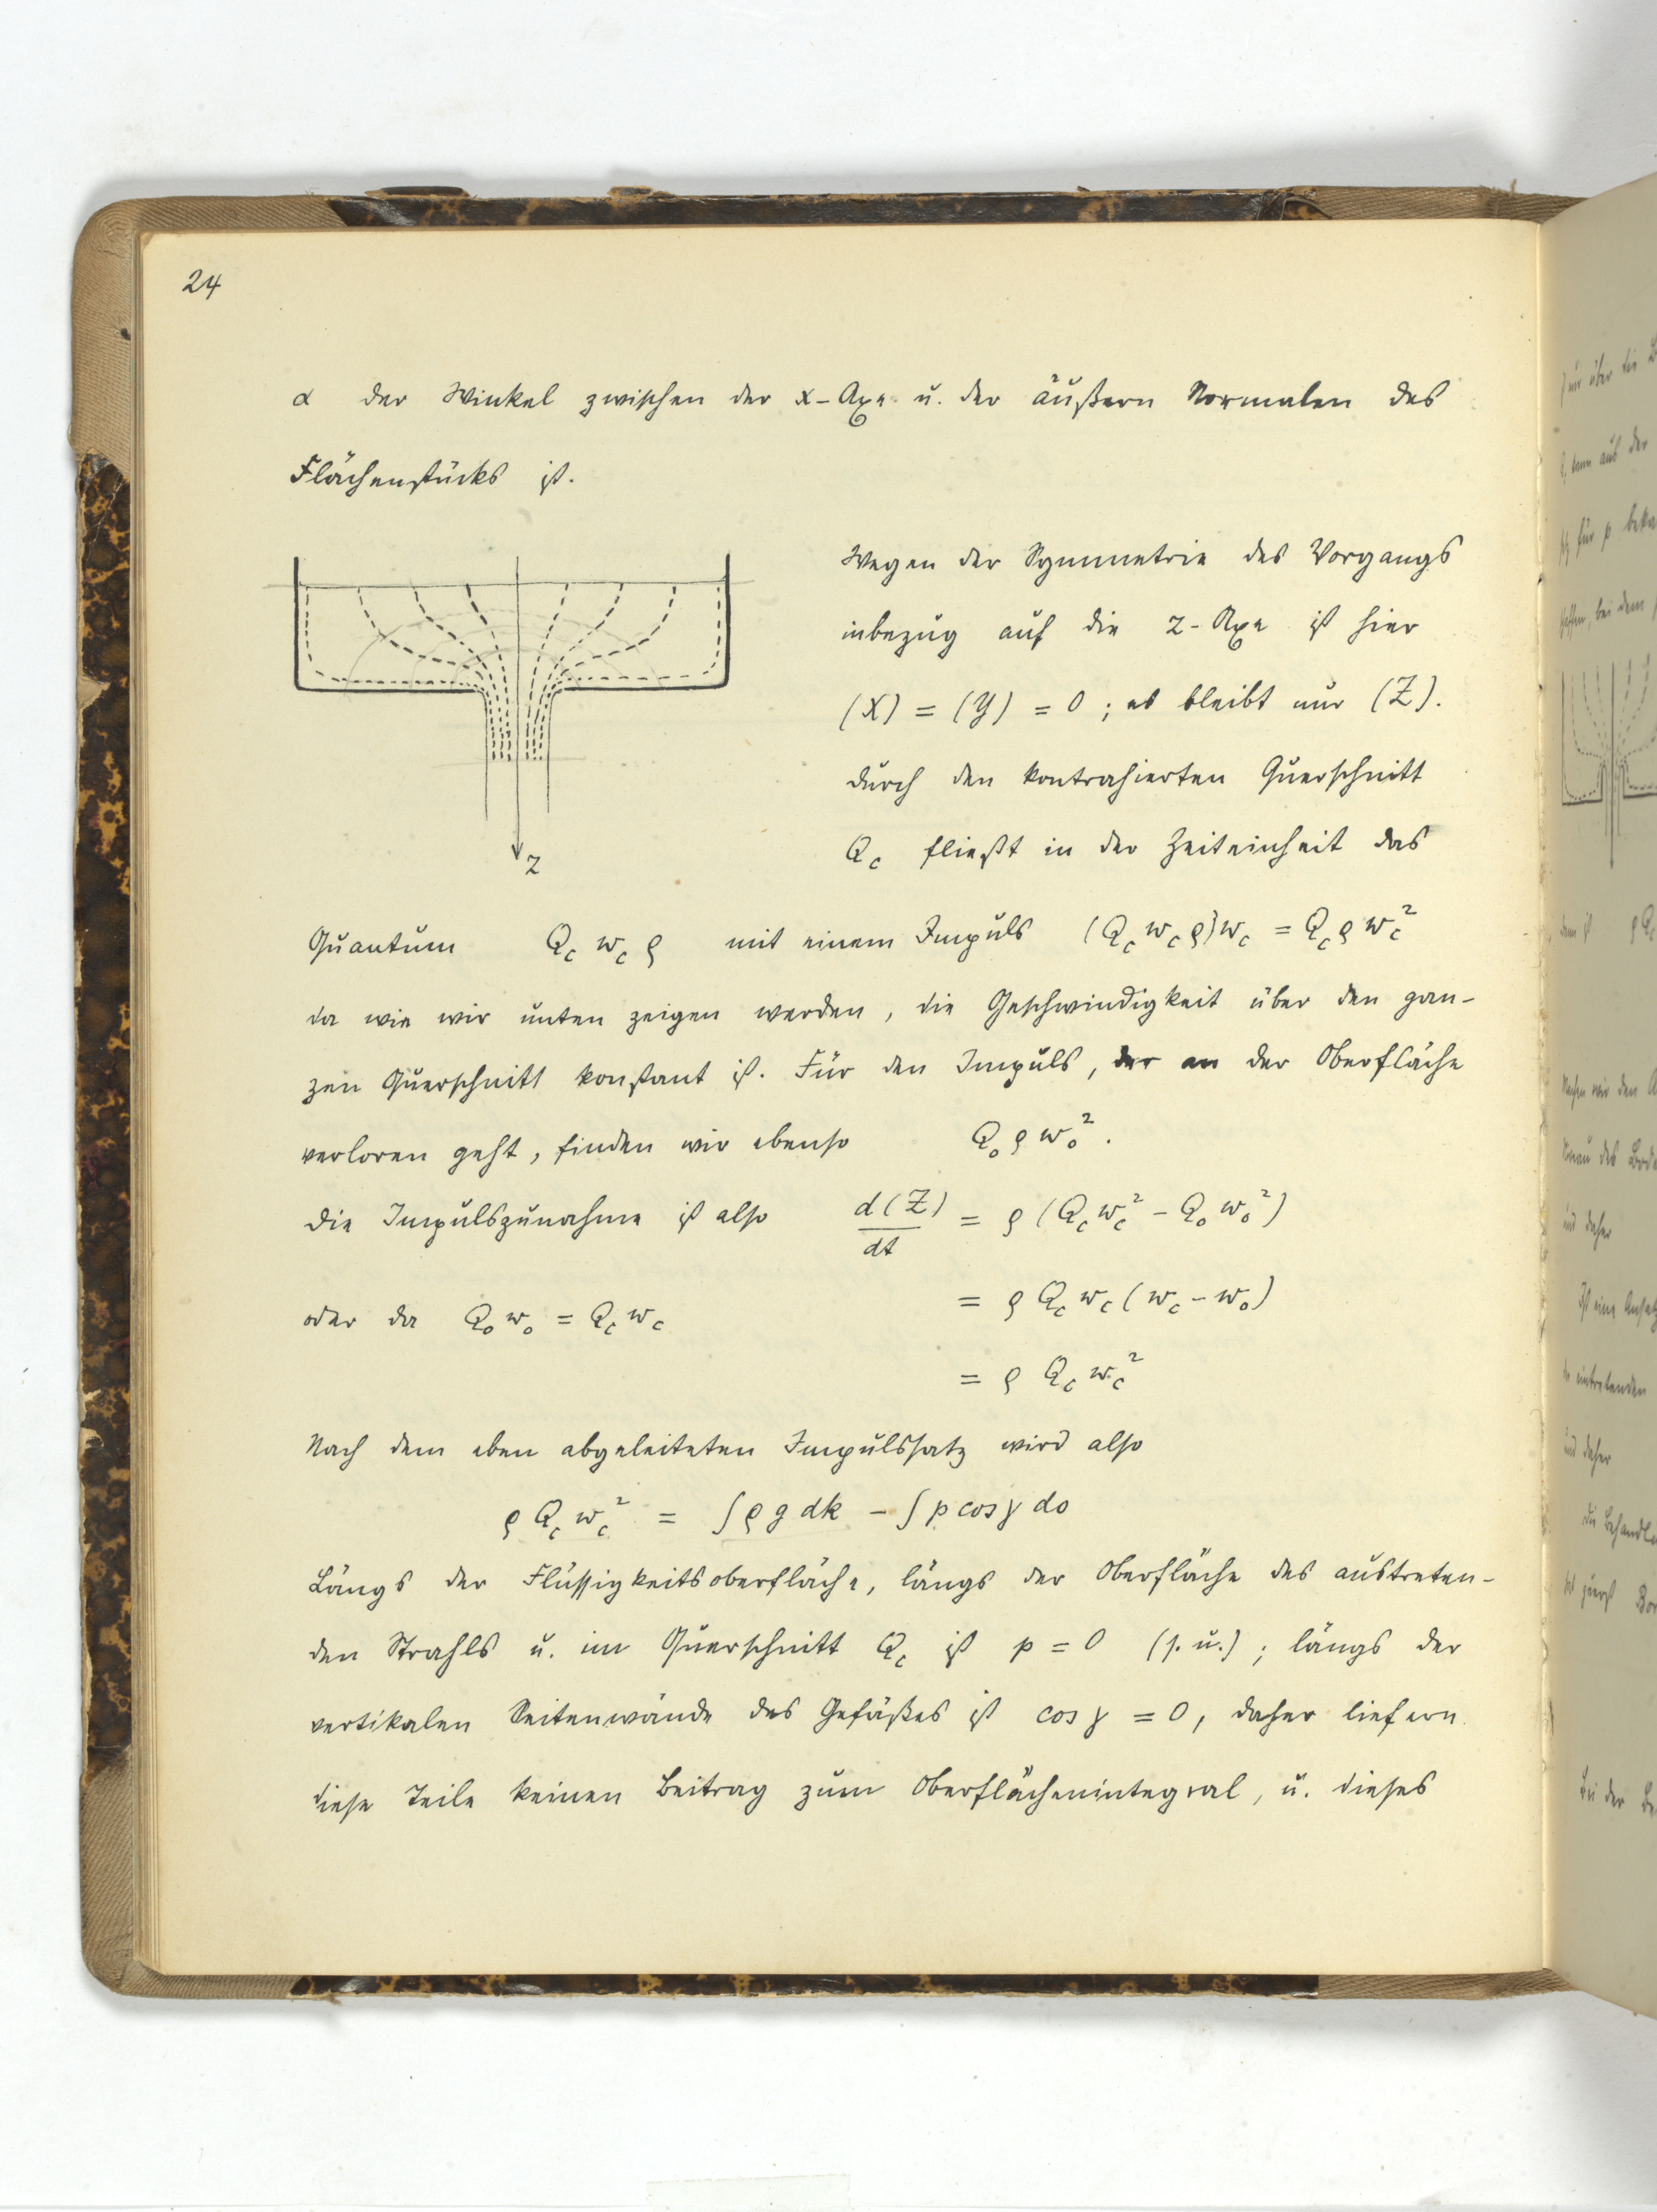 24
α der Winkel zwischen der x-Axe u. der äußern Normalen des
Flächenstücks ist.
Wegen der Symmetrie des Vorgangs
inbezug auf die z-Axe ist hier
(X) = (Y) = 0 ; es bleibt nur (Z).
Durch den kontrahierten Querschnitt
Q_c fließt in der Zeiteinheit das
z
Quantum Q_c w_c ρ mit einem Impuls (Q_c w_c ρ) w_c = Q_c ρ w_c^2
da wie wir unten zeigen werden, die Geschwindigkeit über den gan-
zen Querschnitt konstant ist. Für den Impuls, der an der Oberfläche
verloren geht, finden wir ebenso Q_0 ρ w_0^2.
Die Impulszunahme ist also d(Z)/dt = ρ (Q_c w_c^2 - Q_0 w_0^2)
oder da Q_0 w_0 = Q_c w_c = ρ Q_c w_c (w_c - w_0)
= ρ Q_c w_c^2
Nach dem eben abgeleiteten Impulssatz wird also
ρ Q_c w_c^2 = ∫ρ g dk - ∫p cos γ do
Längs der Flüssigkeitsoberfläche, längs der Oberfläche des austreten-
den Strahls u. im Querschnitt Q_c ist p = 0 (s. u.) ; längs der
vertikalen Seitenwände des Gefäßes ist cos γ = 0, daher liefern
diese Teile keinen Beitrag zum Oberflächenintegral, u. dieses